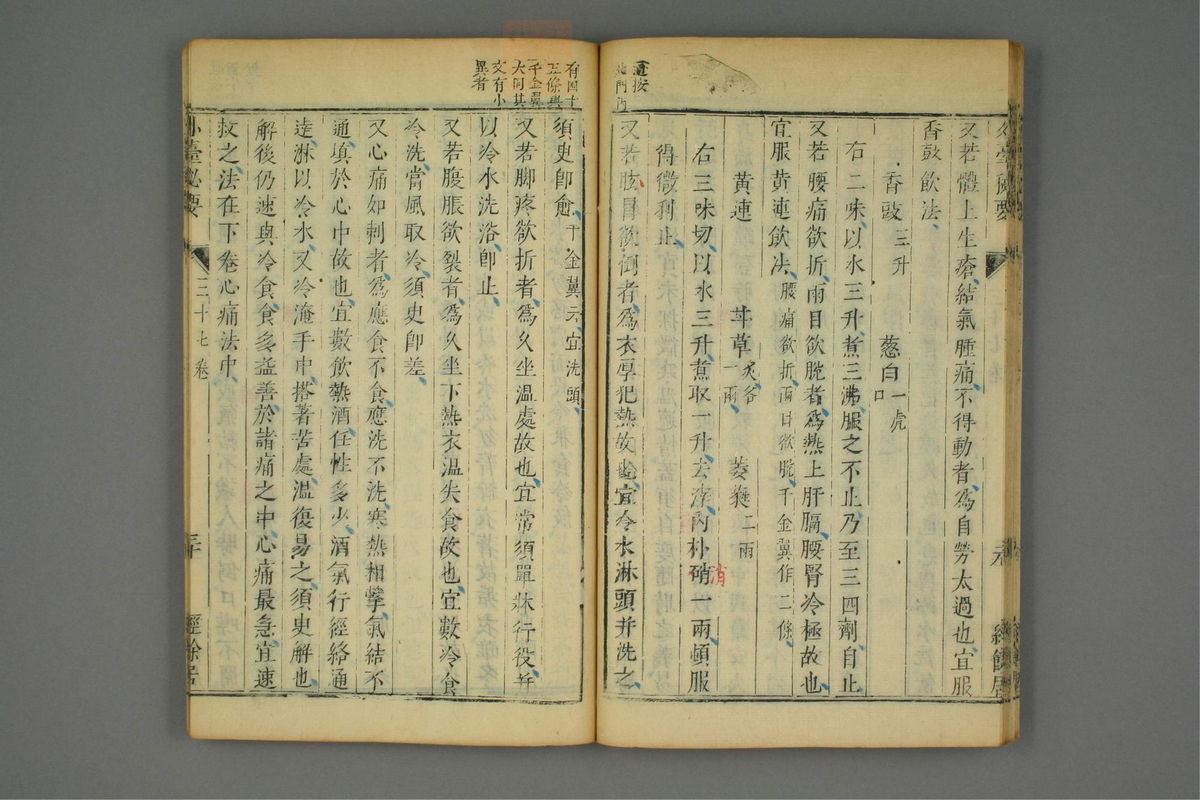 外臺秘要
又若體上生瘡結氣腫痛不得動者為自勞太過也宜服
香豉飲法
香豉三升 葱白一虎口
右二味以水三升煮三沸服之不止乃至三四劑自止
又若腰痛欲折兩目欲脫者為熱上肝膈腰腎冷極故也
宜服黄連飲決腰痛欲折兩目欲脫千金翼作二條
黄連 甘草炙各一兩 葳蕤二兩
右三味切以水三升煮取一升去滓內朴硝一兩頓服
得微利止
又若眩冐欲倒者為衣厚犯熱故也宜冷水淋頭并洗之
有四十
五條與
千金翼
大同其
文有小
異者
須史卽愈千金翼云宜洗頭
又若脚疼欲折者為久坐溫處故也宜常須單牀行役并
以冷水洗浴卽止
又若腹脹欲裂者為久坐下熱衣溫失食故也宜數冷食
冷洗當風取冷須史卽差
又心痛如刺者為應食不食應洗不洗寒熱相擊氣結不
通填於心中故也宜數飲熱酒任性多少酒氣行經絡通
達淋以冷水又冷淹手巾搭著苦處溫復易之須史解也
解後仍速與冷食食多益善於諸痛之中心痛最急宜速
救之法在下卷心痛法中
外臺秘要 三十七卷 三十 經餘居